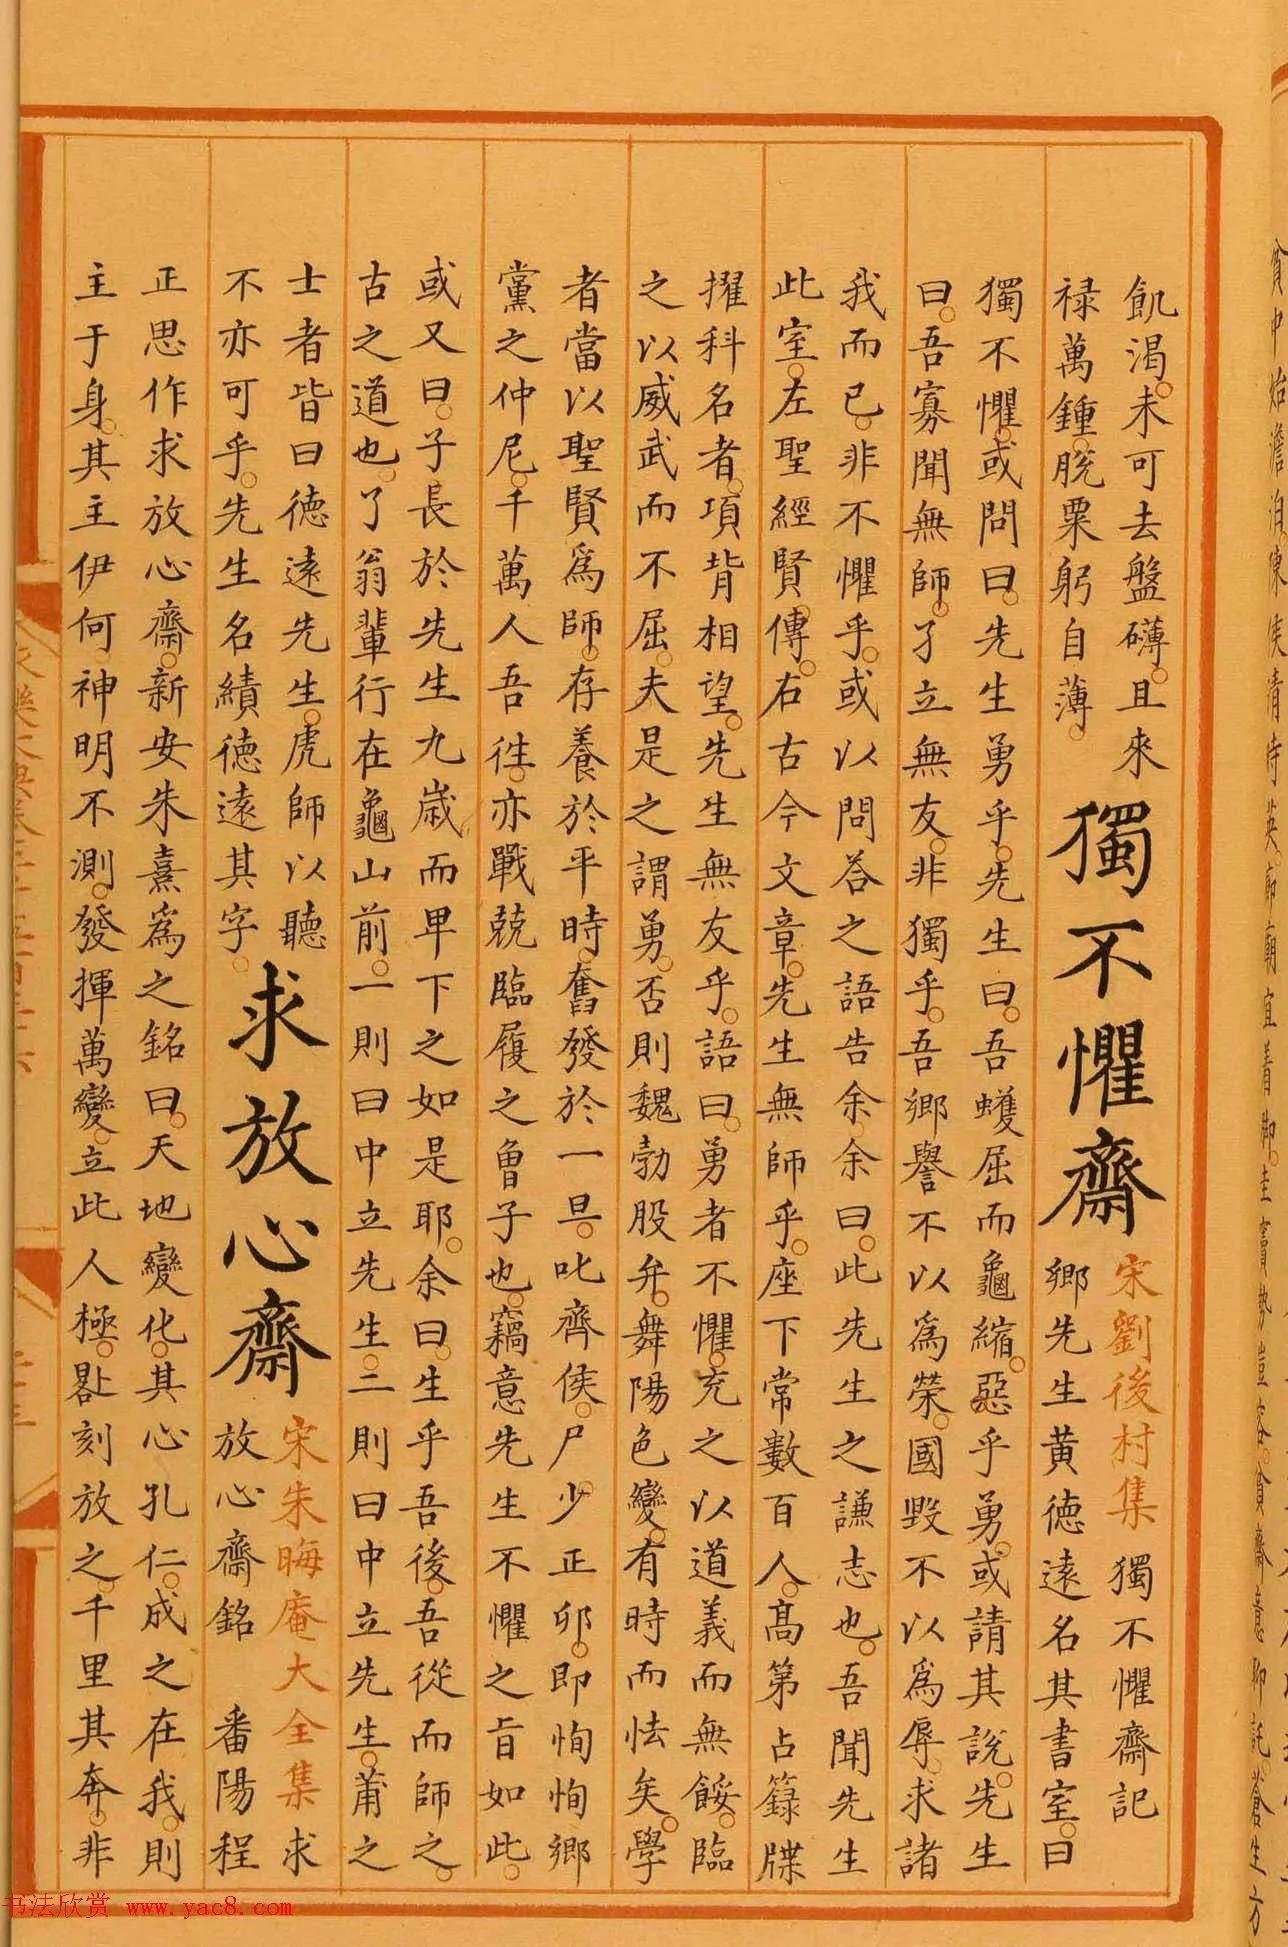 飢渴未可去盤礴且來
禄萬鍾脫粟躬自薄
獨不懼齋
宋劉後村集 獨不懼齋記
鄉先生黄德遠名其書室曰
獨不懼或問曰先生勇乎先生曰吾蠖屈而龜縮惡乎勇或請其說先生
曰吾寡聞無師孑立無友非獨乎吾鄉譽不以爲榮國毀不以爲辱求諸
我而已非不懼乎或以問荅之語告余余曰此先生之謙志也吾聞先生
此室左聖經賢傳右古今文章先生無師乎座下常數百人髙第占籙牒
擢科名者項背相望先生無友乎語曰勇者不懼充之以道義而無餒臨
之以威武而不屈夫是之謂勇否則魏勃股弁舞陽色變有時而怯矣學
者當以聖賢爲師存養於平時奮發於一旦叱齊侯尸少正卯即恂恂鄉
黨之仲尼千萬人吾徃亦戰兢臨履之曾子也竊意先生不懼之旨如此
或又曰子長於先生九歲而卑下之如是耶余曰生乎吾後吾從而師之
古之道也了翁輩行在龜山前一則曰中立先生二則曰中立先生莆之
士者皆曰德遠先生虎師以聽
不亦可乎先生名績德遠其字
求放心齋
宋朱晦庵大全集 求
放心齋銘 番陽程
正思作求放心齋新安朱熹爲之銘曰天地變化其心孔仁成之在我則
主于身其主伊何神明不測發揮萬變立此人極晷刻放之千里其奔非
书法欣赏 www.yac8.com